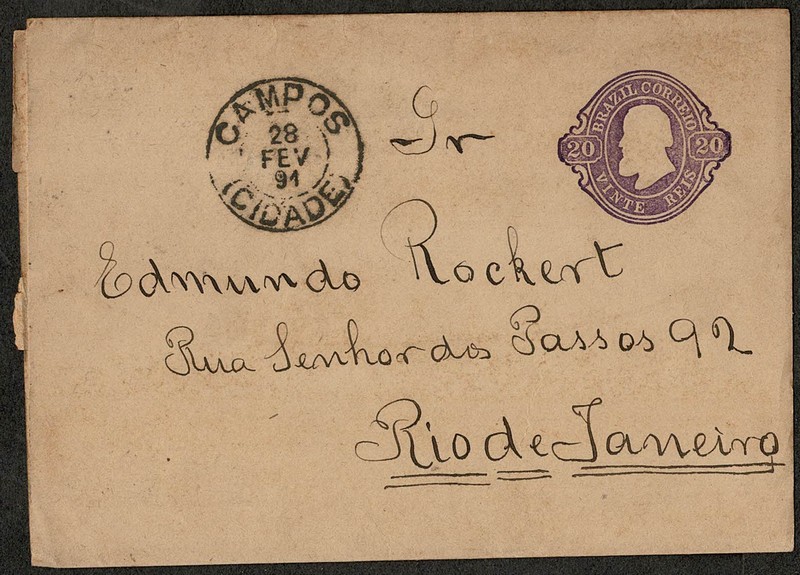 CAMPOS
28
FEV
91
(CIDADE)
BRAZIL CORREIO
20 20
VINTE REIS
Sr
Edmundo Rockert
Rua Senhor dos Passos 92
Rio de Janeiro